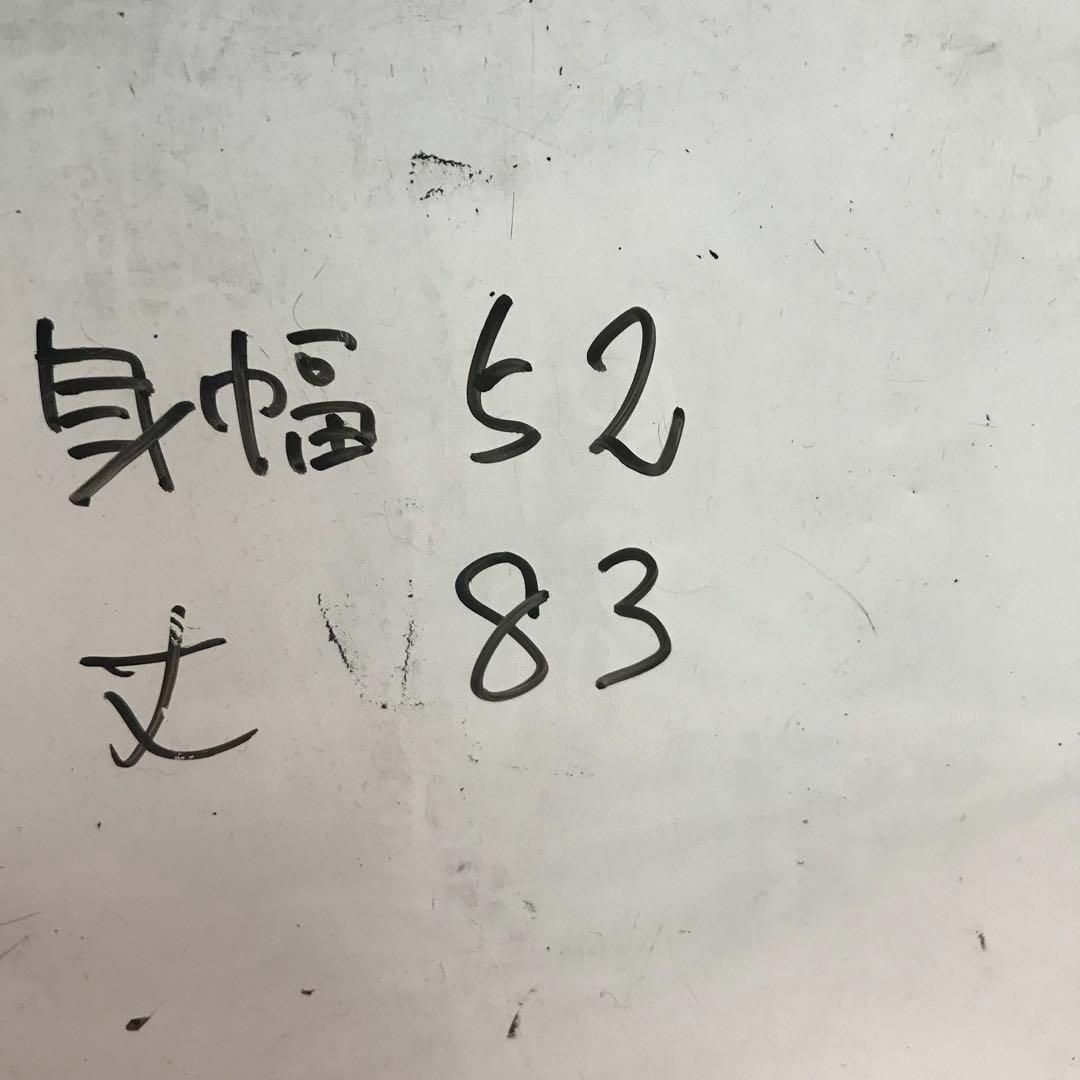 身幅 52
丈 83